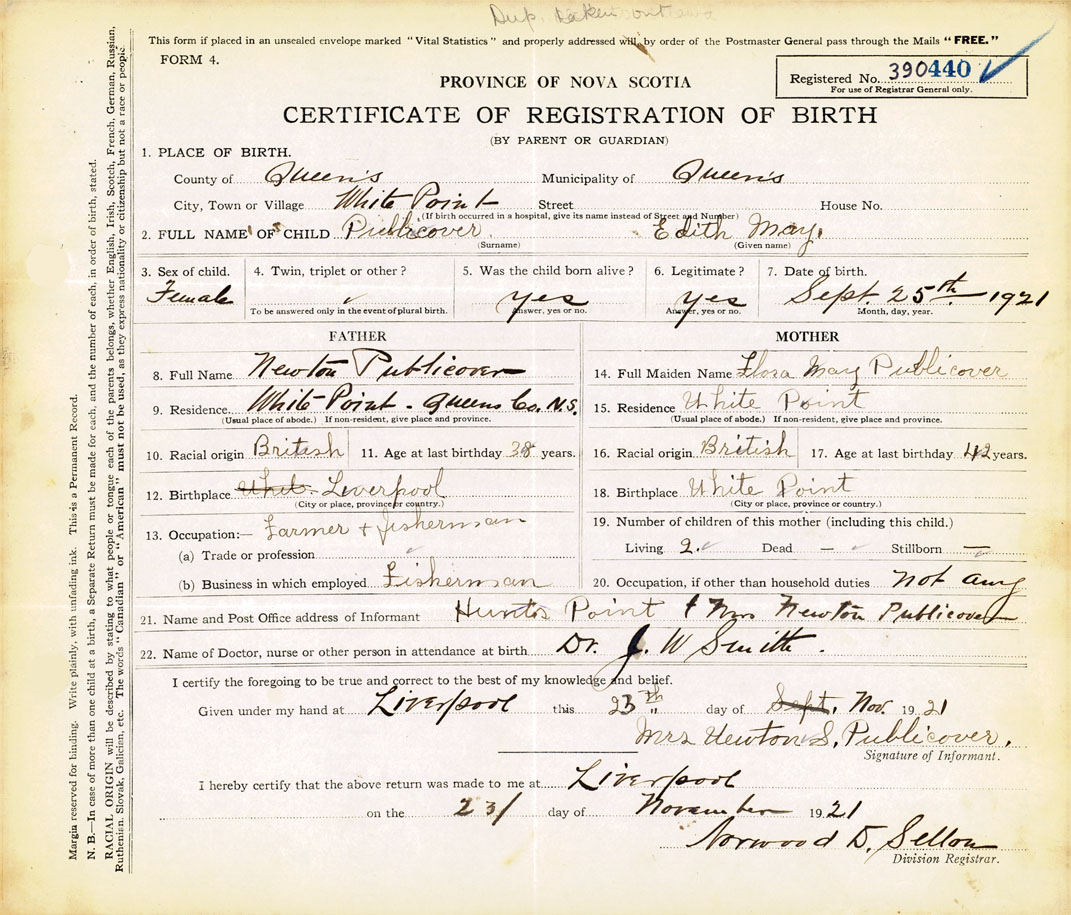 Dup. taken
This form if placed in an unsealed envelope marked "Vital Statistics" and properly addressed will, by order of the Postmaster General pass through the Mails "FREE."
FORM 4.
Registered No. 390440
For use of Registrar General only.
PROVINCE OF NOVA SCOTIA
CERTIFICATE OF REGISTRATION OF BIRTH
(BY PARENT OR GUARDIAN)
1. PLACE OF BIRTH.
County of Queen's Municipality of Queen's
City, Town or Village White Point Street House No.
(If birth occurred in a hospital, give its name instead of Street and Number)
2. FULL NAME OF CHILD Publicover Edith May.
(Surname) (Given name)
3. Sex of child. 4. Twin, triplet or other? 5. Was the child born alive? 6. Legitimate? 7. Date of birth.
Female yes yes Sept. 25th 1921
To be answered only in the event of plural birth. Answer, yes or no. Answer, yes or no. Month, day, year.
FATHER
8. Full Name Newton Publicover
9. Residence White Point - Queens Co. N.S.
(Usual place of abode.) If non-resident, give place and province.
10. Racial origin British 11. Age at last birthday 38 years.
12. Birthplace White Liverpool
(City or place, province or country.)
13. Occupation:— Farmer + fisherman
(a) Trade or profession
(b) Business in which employed Fisherman
MOTHER
14. Full Maiden Name Flora May Publicover
15. Residence White Point
(Usual place of abode.) If non-resident, give place and province.
16. Racial origin British 17. Age at last birthday 42 years.
18. Birthplace White Point
(City or place, province or country.)
19. Number of children of this mother (including this child.)
Living 2. Dead — Stillborn —
20. Occupation, if other than household duties not any
21. Name and Post Office address of Informant Hunts Point + Mrs Newton Publicover
22. Name of Doctor, nurse or other person in attendance at birth. Dr. J. W Smith.
I certify the foregoing to be true and correct to the best of my knowledge and belief.
Given under my hand at Liverpool this 23th day of Sept. Nov. 1921
Mrs Newton S. Publicover.
Signature of Informant.
I hereby certify that the above return was made to me at Liverpool
on the 23/ day of November 1921
Norwood D. Sellon
Division Registrar.
Margin reserved for binding. Write plainly, with unfading ink. This is a Permanent Record.
N. B.—In case of more than one child at a birth, a Separate Return must be made for each, and the number of each, in order of birth, stated.
RACIAL ORIGIN will be described by stating to what people or tongue each of the parents belongs, whether English, Irish, Scotch, French, German, Russian,
Ruthenian, Slovak, Galician, etc. The words "Canadian" or "American" must not be used, as they express nationality or citizenship but not a race or people.